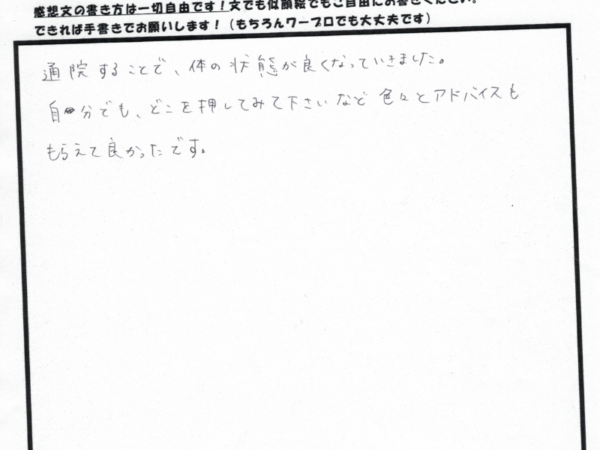 感想文の書き方は一切自由です！文でも似顔絵でもご自由にお書きください。
できれば手書きでお願いします！（もちろんワープロでも大丈夫です）
通院することで、体の状態が良くなっていきました。
自分でも、どこを押してみて下さいなど色々とアドバイスも
もらえて良かったです。